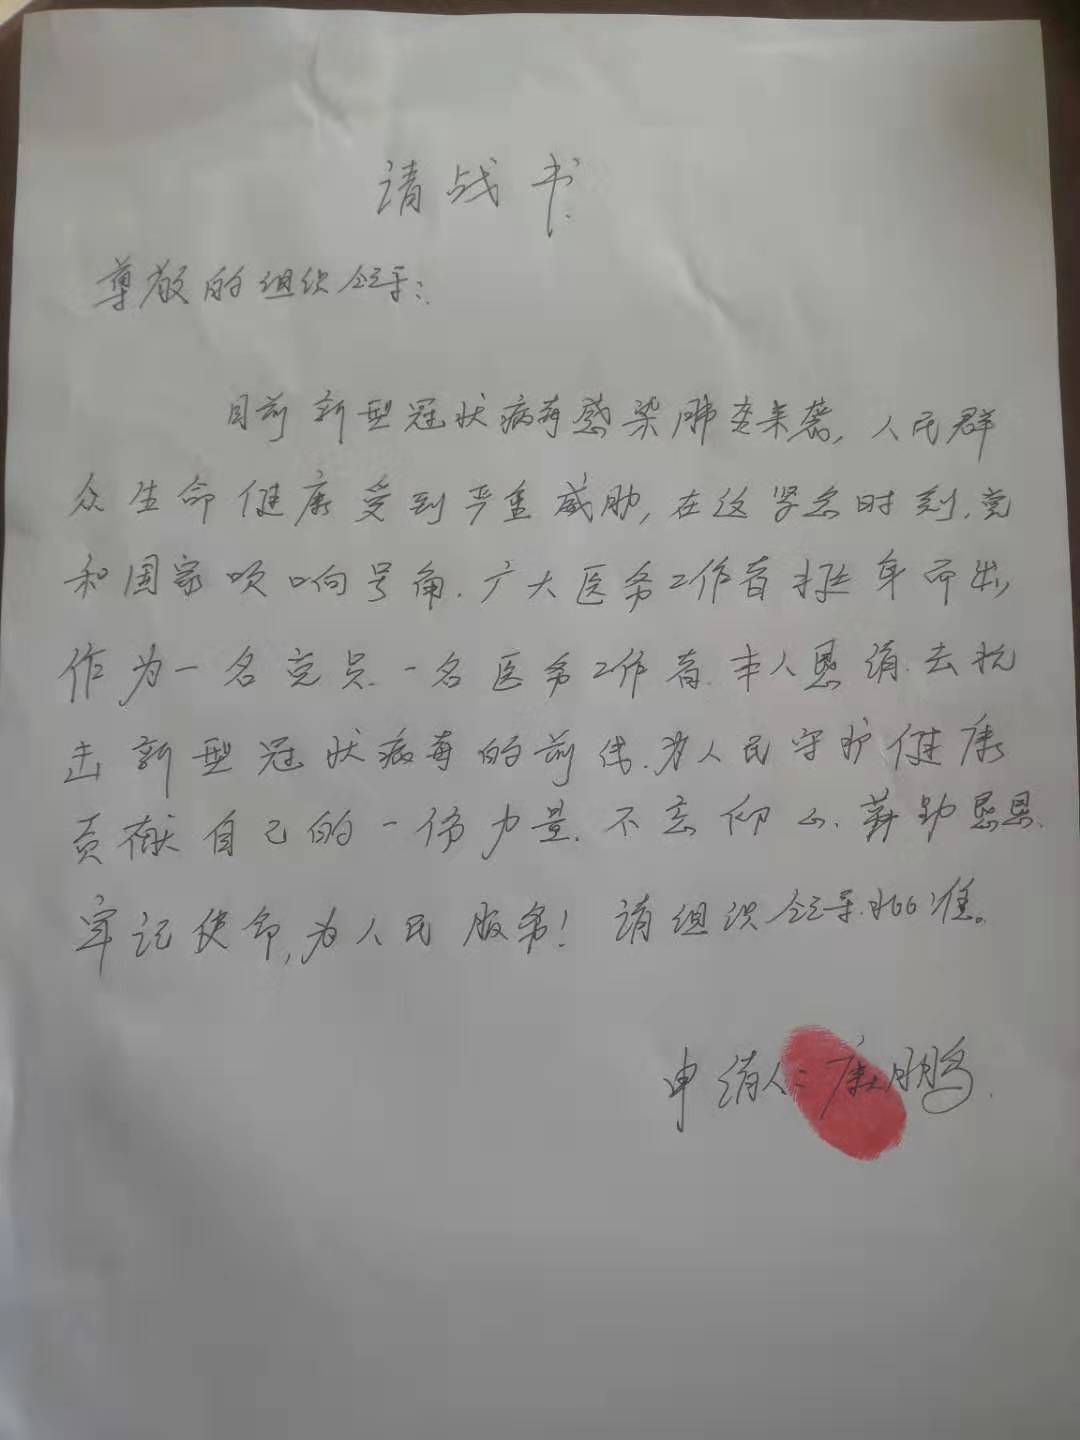 请战书
尊敬的组织领导:
目前新型冠状病毒感染肺炎来袭,人民群
众生命健康受到严重威胁,在这紧急时刻,党
和国家吹响号角.广大医务工作者挺身而出,
作为一名党员.一名医务工作者.本人恳请.去抗
击新型冠状病毒的前线.为人民守护健康
贡献自己的一份力量.不忘初心.兢兢恳恳.
牢记使命,为人民服务!请组织领导批准。
申请人:康鹏